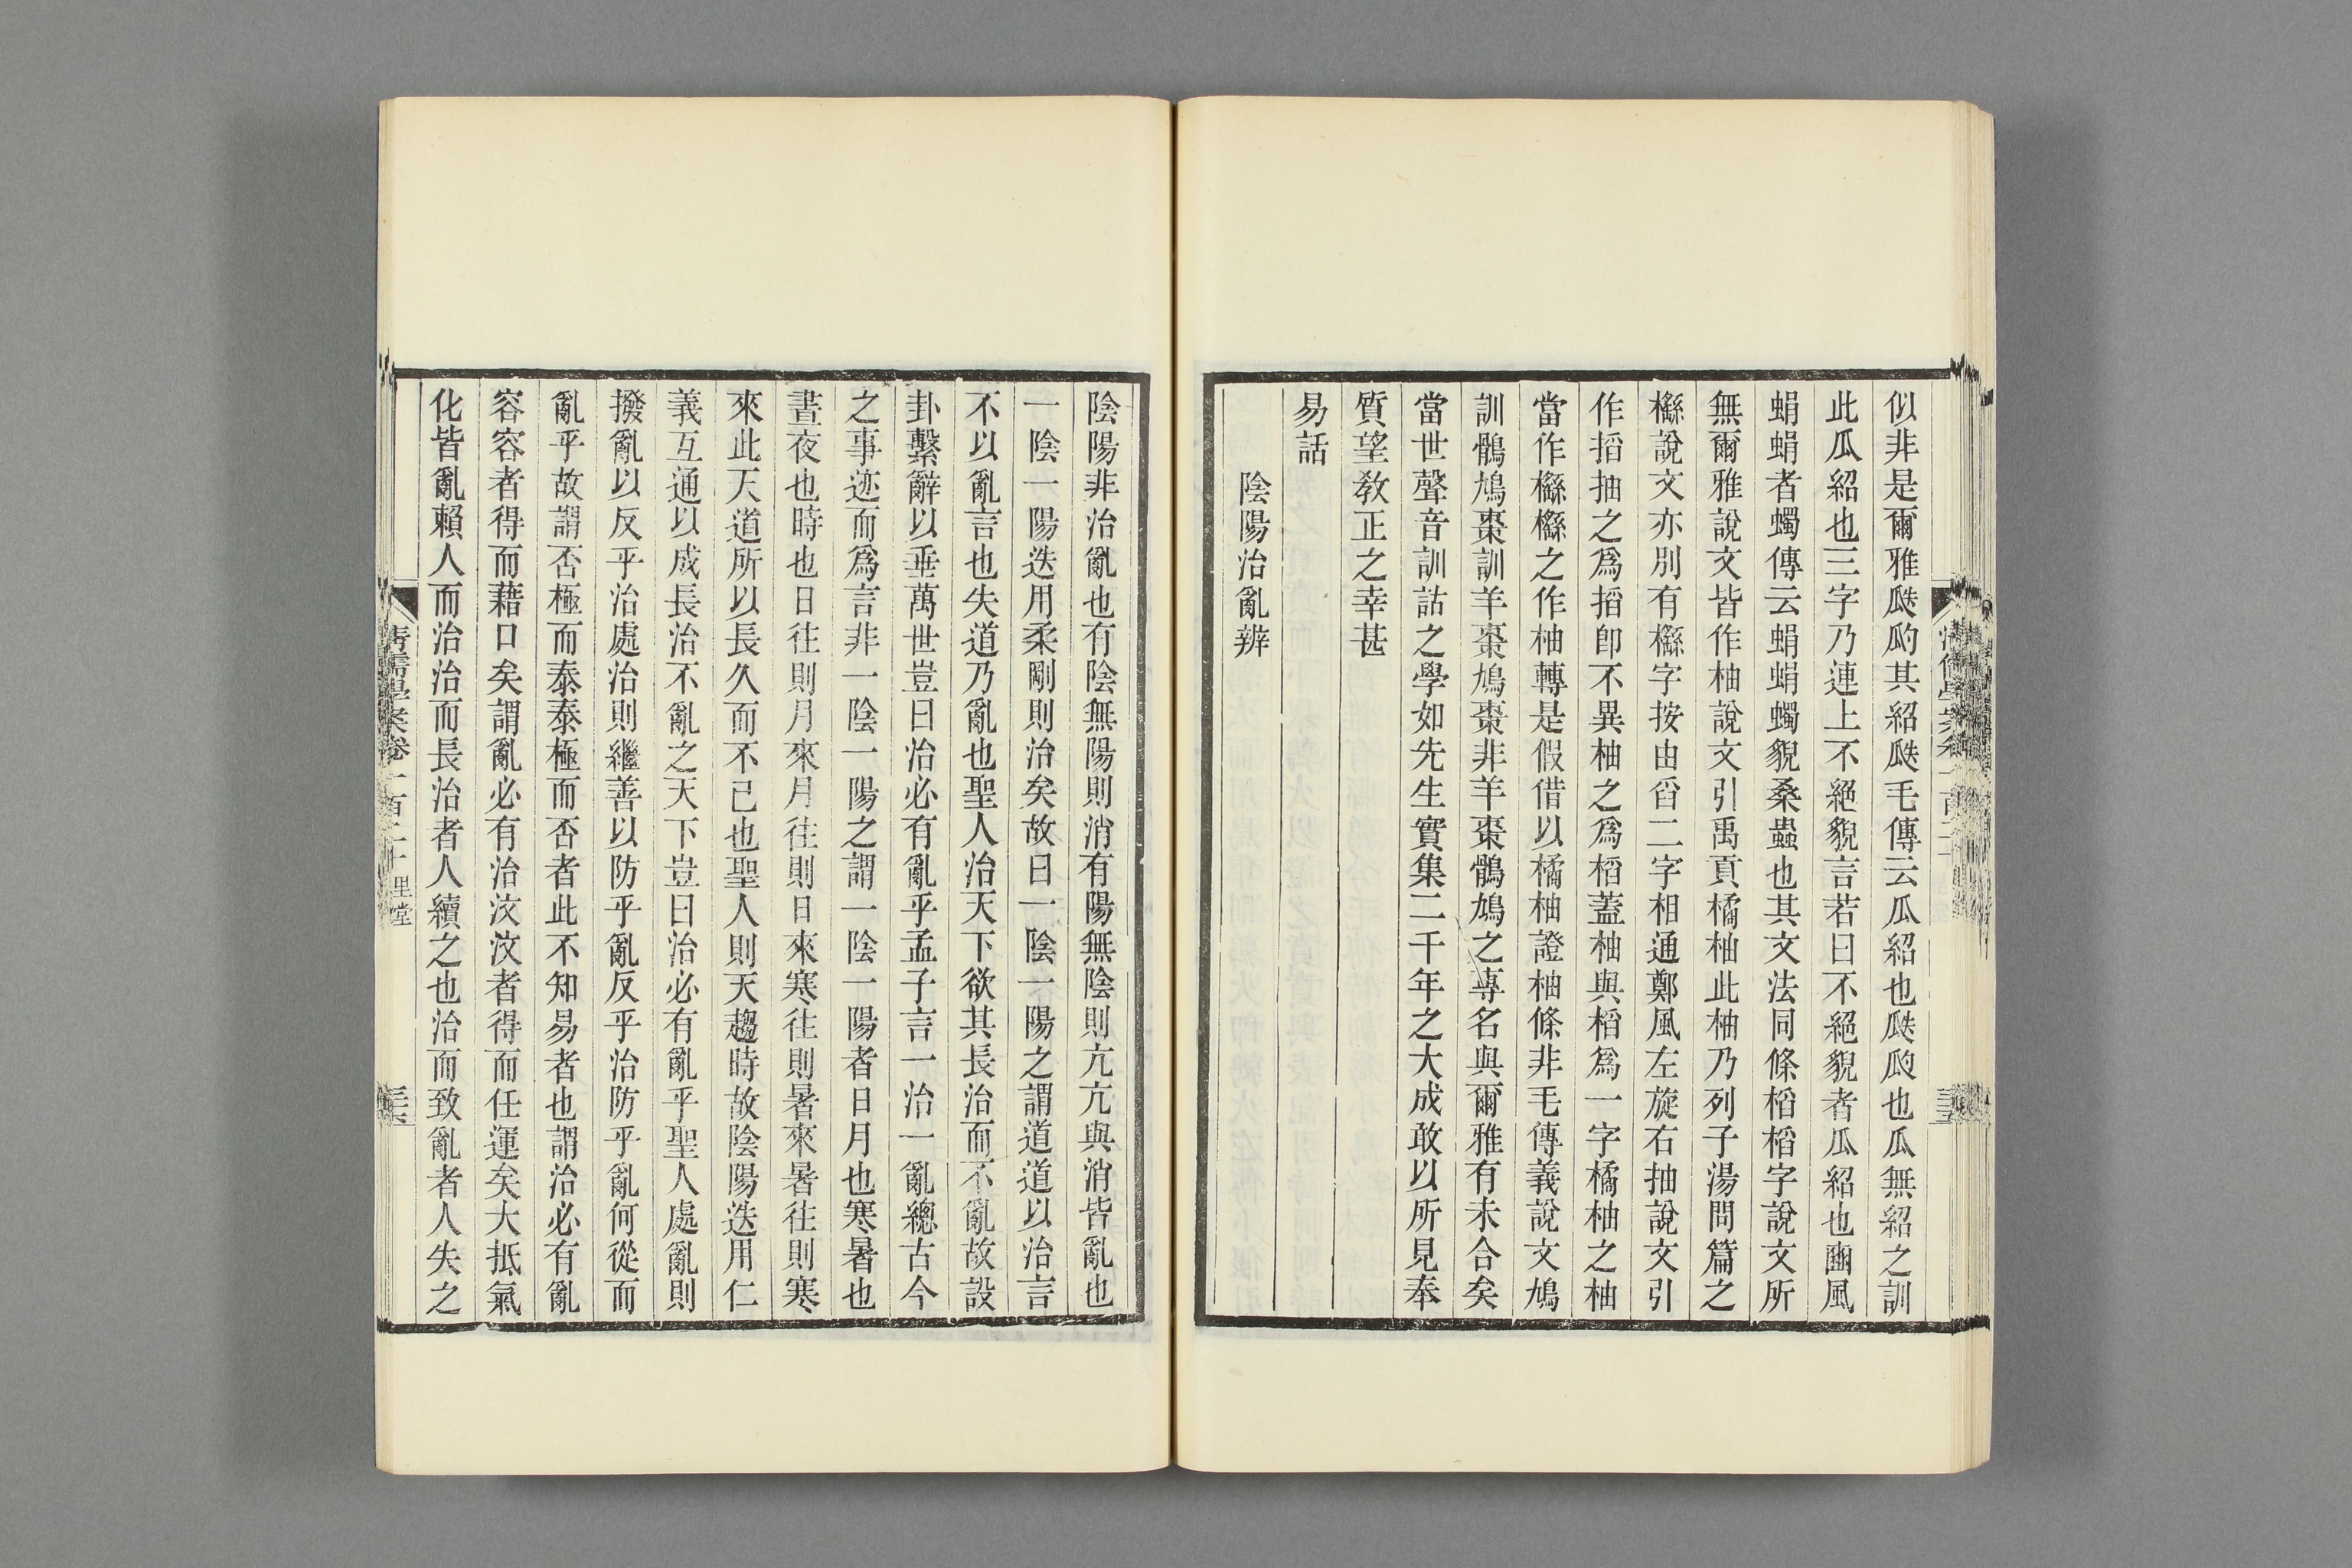 似非是爾雅瓞瓝其紹瓞毛傳云瓜紹也瓞瓝也瓜無紹之訓
此瓜紹也三字乃連上不絕貌言若曰不絕貌者瓜紹也豳風
蜎蜎者蠋傳云蜎蜎蠋貌桑蟲也其文法同條稻稻字說文所
無爾雅說文皆作柚說文引禹貢橘柚此柚乃列子湯問篇之
櫾說文亦別有櫾字按由舀二字相通鄭風左旋右抽說文引
作搯抽之爲搯卽不異柚之爲稻蓋柚與稻爲一字橘柚之柚
當作櫾櫾之作柚轉是假借以橘柚證柚條非毛傳義說文鳩
訓鶻鳩棗訓羊棗鳩棗非羊棗鶻鳩之專名與爾雅有未合矣
當世聲音訓詁之學如先生實集二千年之大成敢以所見奉
質望敎正之幸甚
易話
陰陽治亂辨
陰陽非治亂也有陰無陽則消有陽無陰則亢亢與消皆亂也
一陰一陽迭用柔剛則治矣故曰一陰一陽之謂道道以治言
不以亂言也失道乃亂也聖人治天下欲其長治而不亂故設
卦繫辭以垂萬世豈曰治必有亂乎孟子言一治一亂總古今
之事迹而爲言非一陰一陽之謂一陰一陽者日月也寒暑也
晝夜也時也日往則月來月往則日來寒往則暑來暑往則寒
來此天道所以長久而不已也聖人則天趨時故陰陽迭用仁
義互通以成長治不亂之天下豈曰治必有亂乎聖人處亂則
撥亂以反乎治處治則繼善以防乎亂反乎治防乎亂何從而
亂乎故謂否極而泰泰極而否者此不知易者也謂治必有亂
容容者得而藉口矣謂亂必有治汶汶者得而任運矣大抵氣
化皆亂賴人而治治而長治者人續之也治而致亂者人失之
清儒學案卷一百二十 里堂
三六